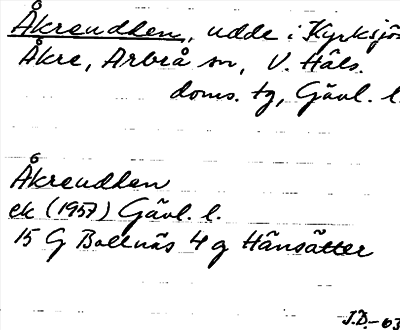 Åkreudden, udde i Kyrksjön
Åkre, Arbrå sn, V. Häls.
doms. tg, Gävl. l.
Åkreudden
ek (1957) Gävl. l.
15 G Bollnäs 4 g Hänsätter
J.D.-63